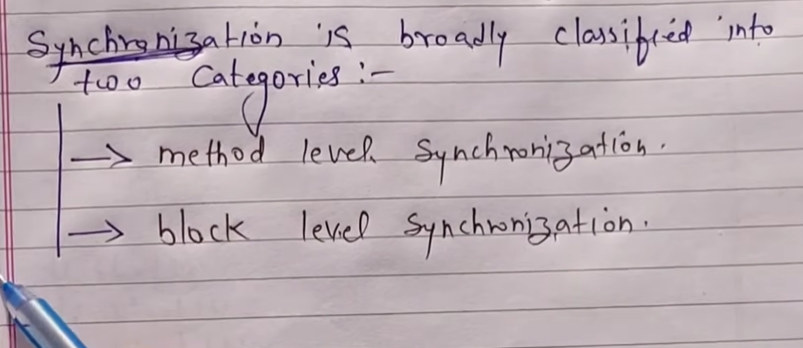 Synchronization is broadly classified into
two Categories :-
→ method level Synchronization.
→ block level Synchronization.